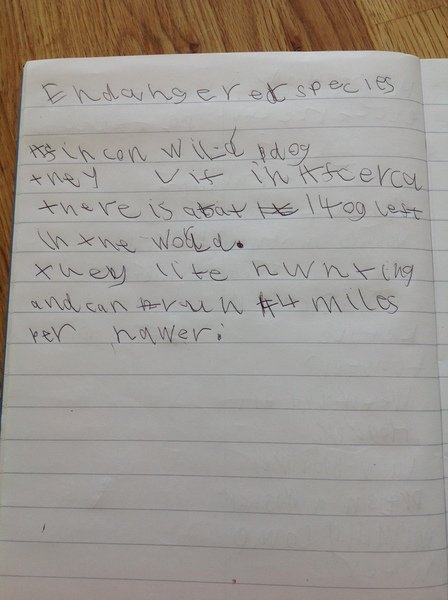 Endangered species
Afincon wild dog
they lif in Afcerca
there is abat 1409 left
in the world.
they like hwnting
and can run 44 miles
per hawer.